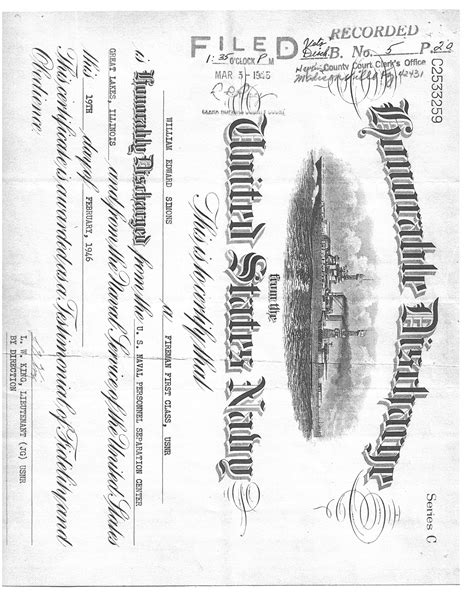 FILED
1:35 O'CLOCK P M
MAR 5 - 1946
RECORDED
B. No. 5 P. 20
County Court Clerk's Office
C2533259
Series C
Honorable Discharge
from the
United States Navy
This is to certify that
WILLIAM EDWARD SIMONS a FIREMAN FIRST CLASS, USNR
is Honorably Discharged from the U. S. NAVAL PERSONNEL SEPARATION CENTER
GREAT LAKES, ILLINOIS and from the Naval Service of the United States
this 19TH day of FEBRUARY, 1946
This certificate is awarded as a Testimonial of Fidelity and
Obedience.
L. W. KING, LIEUTENANT (JG) USNR
BY DIRECTION